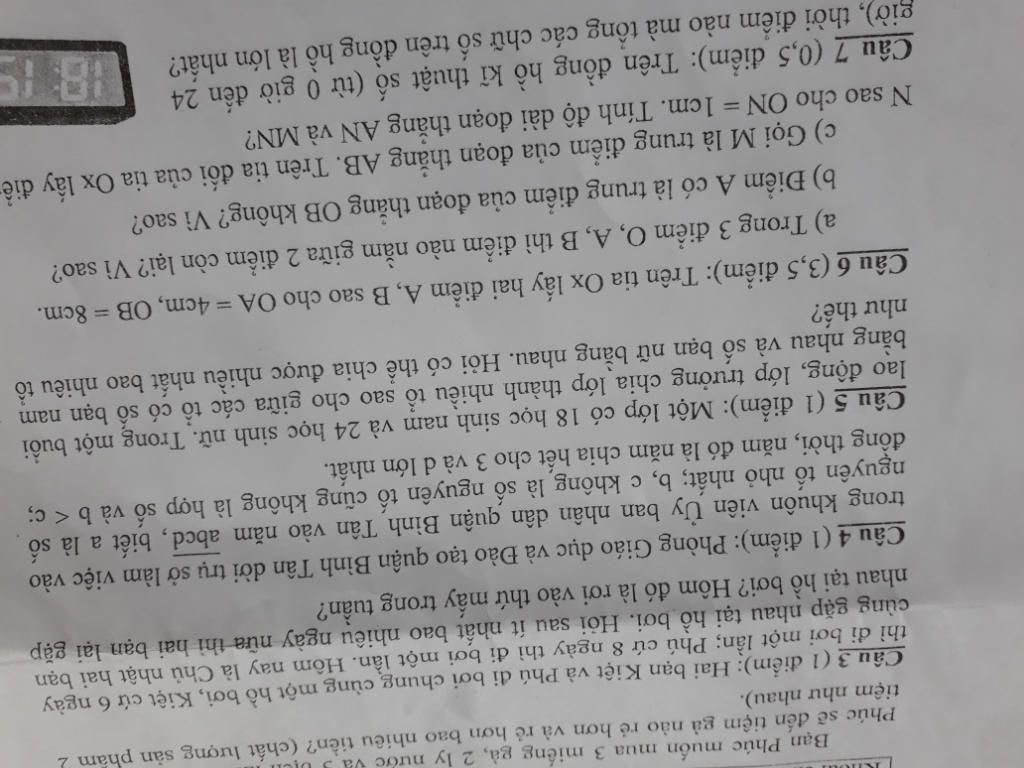 Bạn Phúc muốn mua 3 miếng gà, 2 ly nước và 3
Phúc sẽ đến tiệm gà nào rẻ hơn và rẻ hơn bao nhiêu tiền? (chất lượng sản phẩm 2
tiệm như nhau).
Câu 3 (1 điểm): Hai bạn Kiệt và Phú đi bơi chung cùng một hồ bơi, Kiệt cứ 6 ngày
thì đi bơi một lần; Phú cứ 8 ngày thì đi bơi một lần. Hôm nay là Chủ nhật hai bạn
cùng gặp nhau tại hồ bơi. Hỏi sau ít nhất bao nhiêu ngày nữa thì hai bạn lại gặp
nhau tại hồ bơi? Hôm đó là rơi vào thứ mấy trong tuần?
Câu 4 (1 điểm): Phòng Giáo dục và Đào tạo quận Bình Tân dời trụ sở làm việc vào
trong khuôn viên Ủy ban nhân dân quận Bình Tân vào năm abcd, biết a là số
nguyên tố nhỏ nhất; b, c không là số nguyên tố cũng không là hợp số và b < c;
đồng thời, năm đó là năm chia hết cho 3 và d lớn nhất.
Câu 5 (1 điểm): Một lớp có 18 học sinh nam và 24 học sinh nữ. Trong một buổi
lao động, lớp trưởng chia lớp thành nhiều tổ sao cho giữa các tổ có số bạn nam
bằng nhau và số bạn nữ bằng nhau. Hỏi có thể chia được nhiều nhất bao nhiêu tổ
như thế?
Câu 6 (3,5 điểm): Trên tia Ox lấy hai điểm A, B sao cho OA = 4cm, OB = 8cm.
a) Trong 3 điểm O, A, B thì điểm nào nằm giữa 2 điểm còn lại? Vì sao?
b) Điểm A có là trung điểm của đoạn thẳng OB không? Vì sao?
c) Gọi M là trung điểm của đoạn thẳng AB. Trên tia đối của tia Ox lấy điểm
N sao cho ON = 1cm. Tính độ dài đoạn thẳng AN và MN?
Câu 7 (0,5 điểm): Trên đồng hồ kĩ thuật số (từ 0 giờ đến 24
giờ), thời điểm nào mà tổng các chữ số trên đồng hồ là lớn nhất?